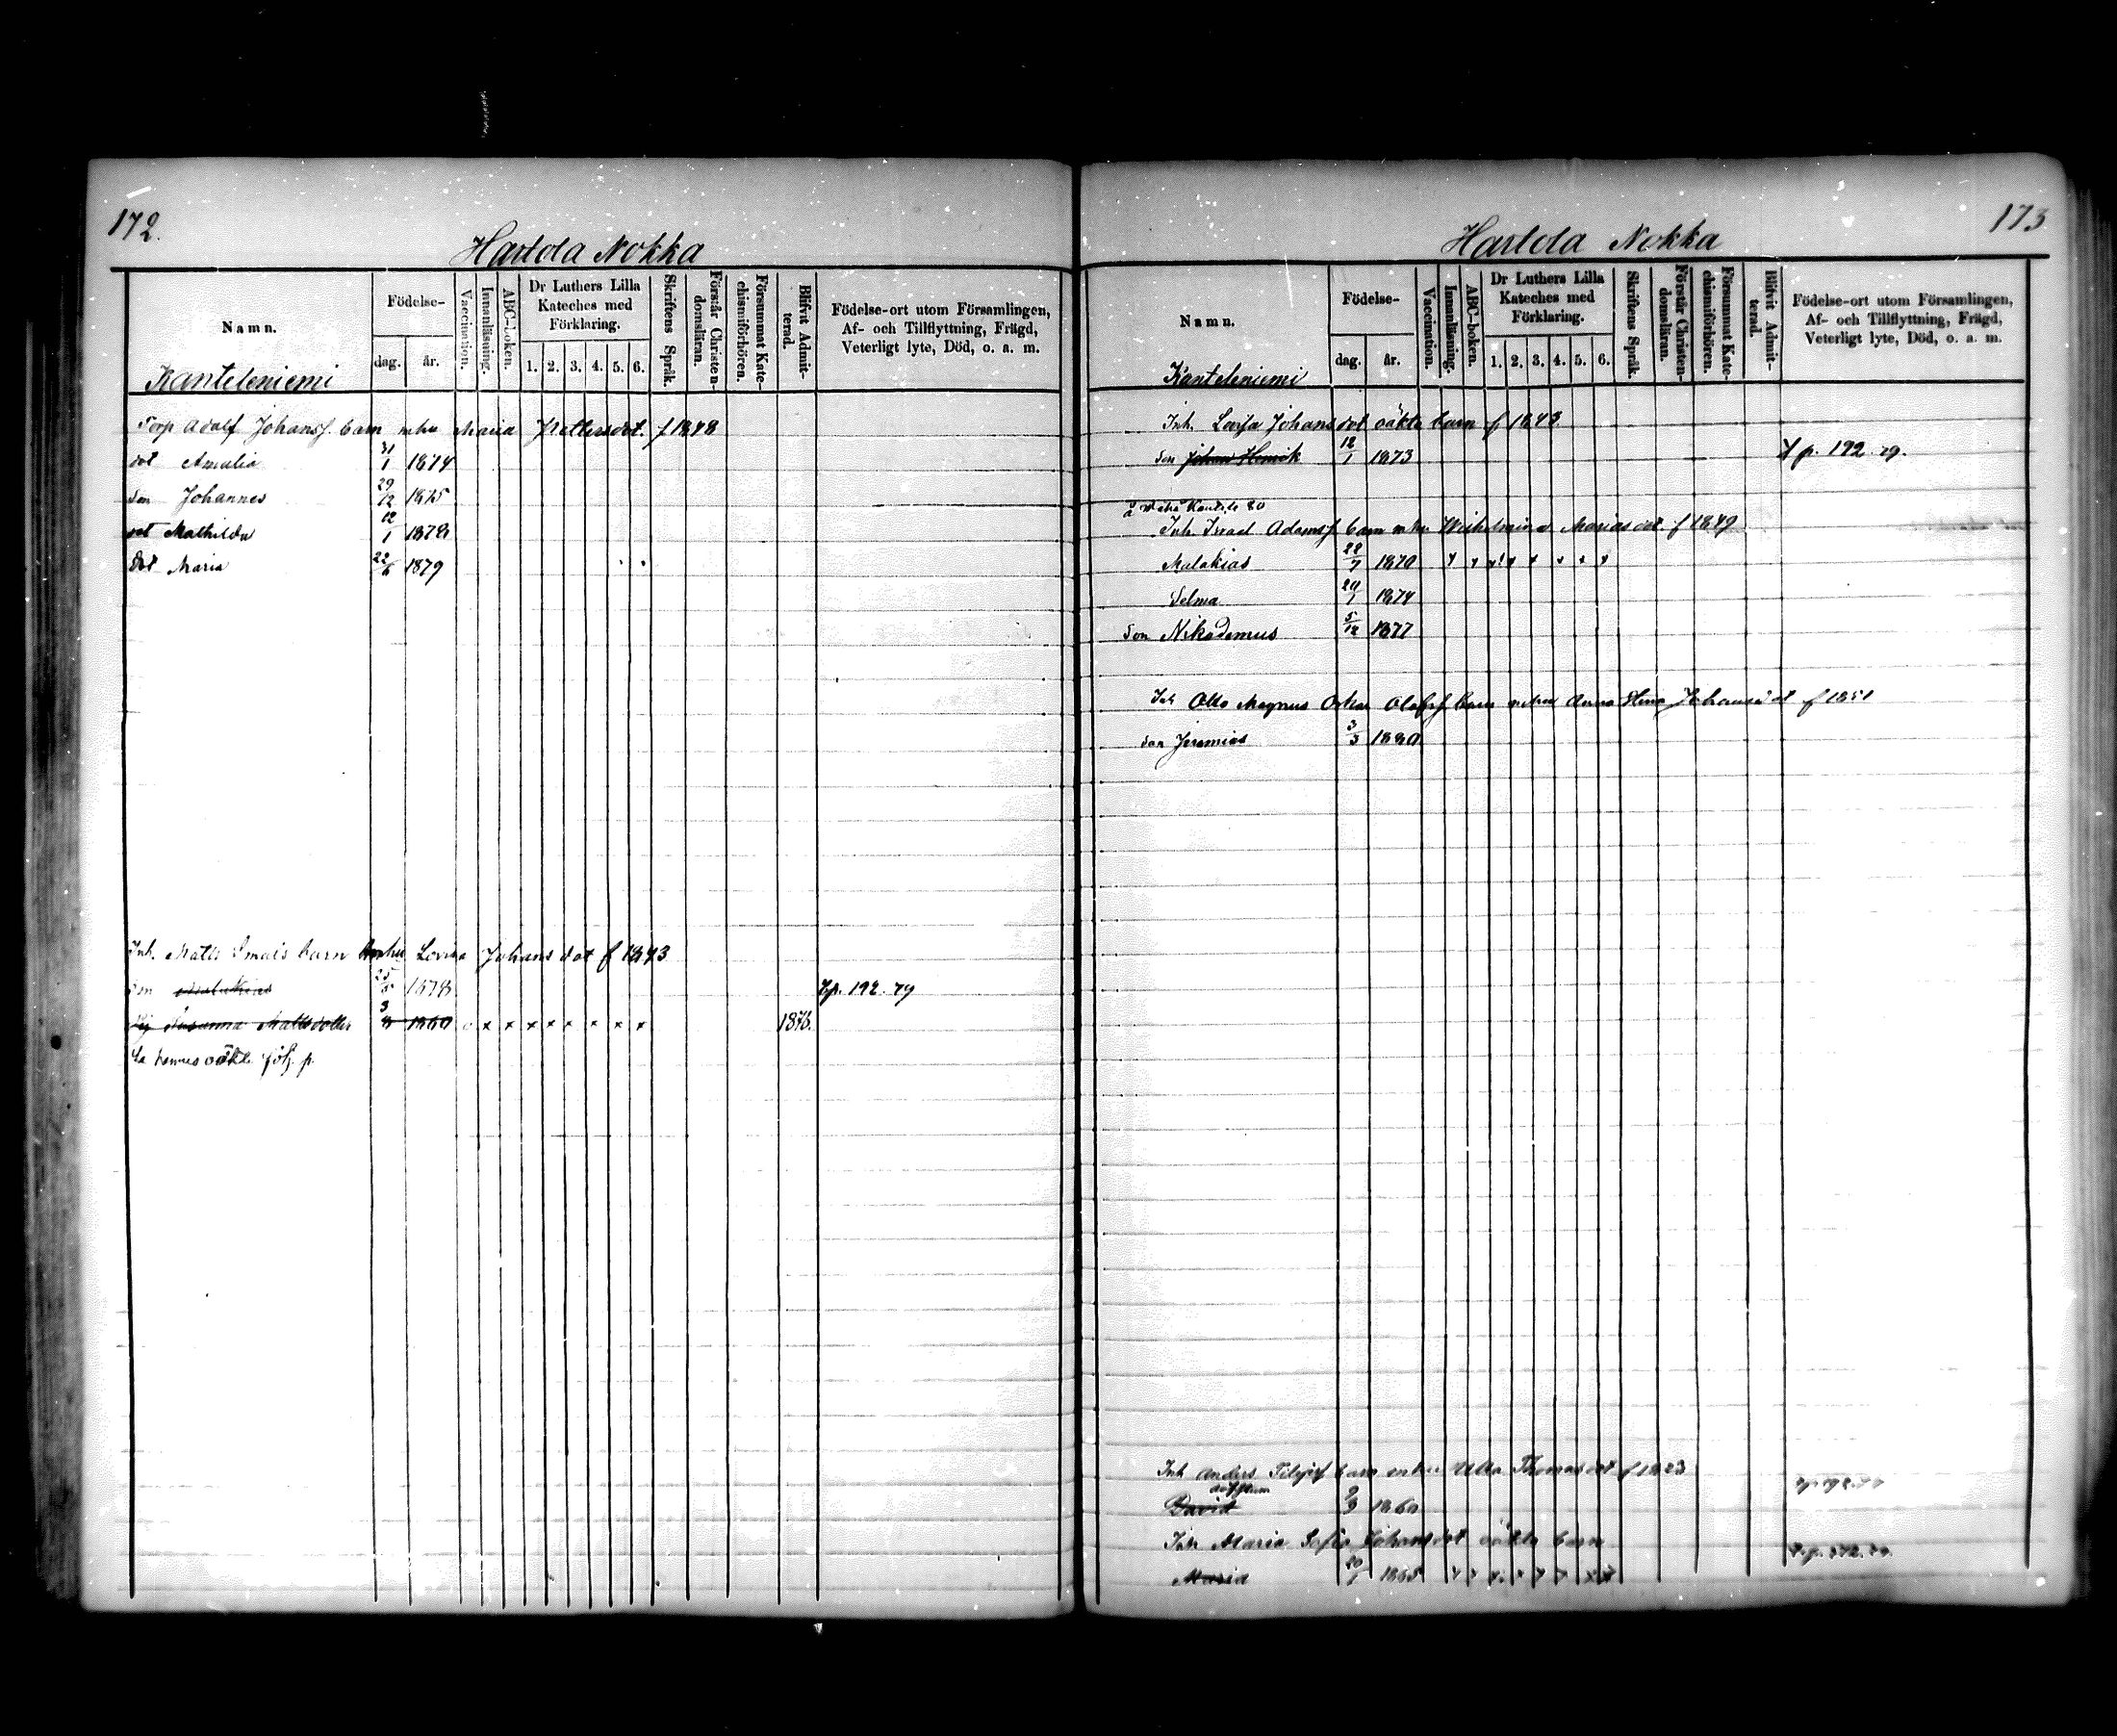 172.
Hartola Nokka
Namn.
Födelse-
dag. år.
Vaccination.
Innanläsning.
ABC-boken.
Dr Luthers Lilla Kateches med Förklaring.
1. 2. 3. 4. 5. 6.
Skriftens Språk.
Förstår Christendomsläran.
Försummat Katechismiförhören.
Blifvit Admitterad.
Födelse-ort utom Församlingen, Af- och Tillflyttning, Frägd, Veterligt lyte, Död, o. a. m.
Kanteleniemi
Torp Adolf Johansf. barn mhu Maria Pettersdot. f 1848
dot Amalia 31/1 1874
Son Johannes 29/12 1875
dot Mathilda 12/1 1878
dot Maria 22/6 1879
Inh. Matts barn mhu Lovisa Johansdot f 1843
son 25/5 1878 192. 79
Pig Susanna Mattsdotter 1860 x x x x x x x x 1876.
oäkte följ. p.
173
Hartola Nokka
Namn.
Födelse-
dag. år.
Vaccination.
Innanläsning.
ABC-boken.
Dr Luthers Lilla Kateches med Förklaring.
1. 2. 3. 4. 5. 6.
Skriftens Språk.
Förstår Christendomsläran.
Försummat Katechismiförhören.
Blifvit Admitterad.
Födelse-ort utom Församlingen, Af- och Tillflyttning, Frägd, Veterligt lyte, Död, o. a. m.
Kanteleniemi
Inh. Lovisa Johansdot oäkta barn f 1843
son Johan Henrik 12/1 1873 p. 192. 79.
Inh. Israel Adamsf. barn mhu Wilhelmina Mariasdot. f 1849
Malakias 22/7 1870
Selma 1874
Son Nikodemus 5/12 1877
Inh Otto Magnus Oskar Olofsf barn mhu Anna Stina Johansdot f 1851
son Jeremias 3/3 1880
Inh Anders barn mhu Ulla Thomasdot f 1823
David 1860
Inh Maria Sofia Johansdot oäkta barn
Maria 1865